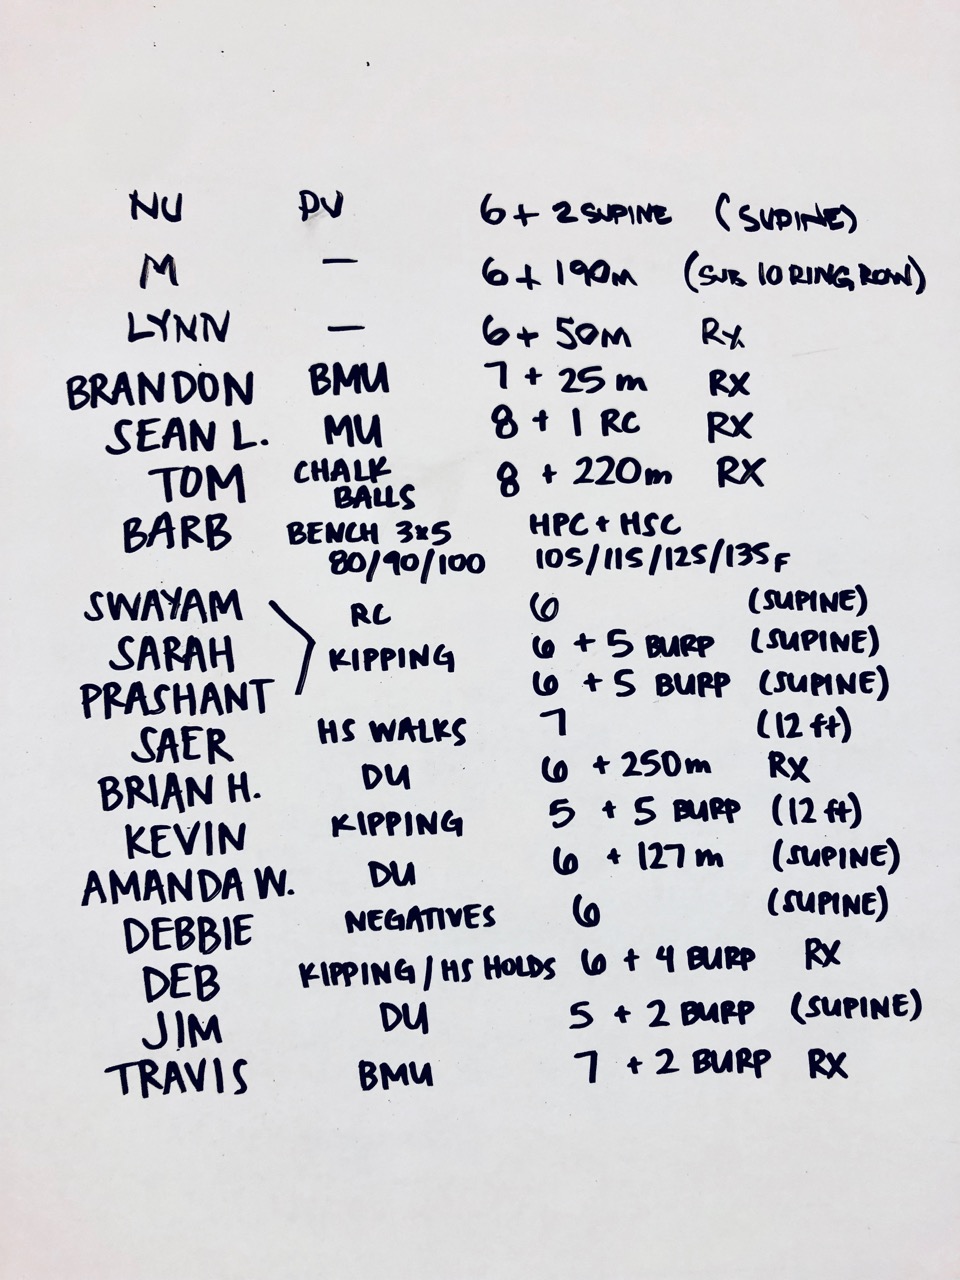 NU PU 6 + 2 SUPINE (SUPINE)
M — 6 + 190m (SUB 10 RING ROW)
LYNN — 6 + 50m Rx
BRANDON BMU 7 + 25 m RX
SEAN L. MU 8 + 1 RC RX
TOM CHALK BALLS 8 + 220m RX
BARB BENCH 3x5 HPC + HSC
80/90/100 105/115/125/135F
SWAYAM RC 6 (SUPINE)
SARAH KIPPING 6 + 5 BURP (SUPINE)
PRASHANT 6 + 5 BURP (SUPINE)
SAER HS WALKS 7 (12 ft)
BRIAN H. DU 6 + 250m RX
KEVIN KIPPING 5 + 5 BURP (12 ft)
AMANDA W. DU 6 + 127 m (SUPINE)
DEBBIE NEGATIVES 6 (SUPINE)
DEB KIPPING / HS HOLDS 6 + 4 BURP RX
JIM DU 5 + 2 BURP (SUPINE)
TRAVIS BMU 7 + 2 BURP RX